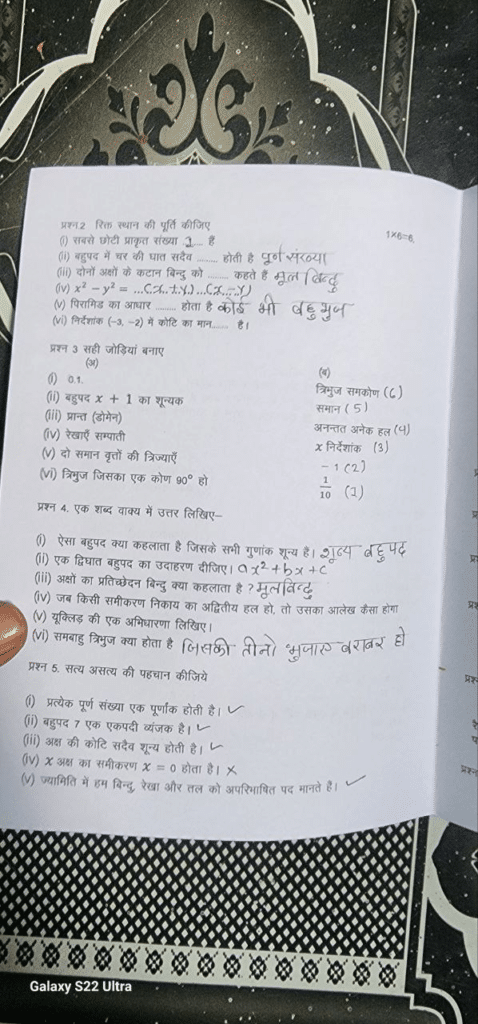 प्रश्न.2 रिक्त स्थान की पूर्ति कीजिए 1×6=6
(i) सबसे छोटी प्राकृत संख्या 1 है
(ii) बहुपद में चर की घात सदैव ........ होती है पूर्ण संख्या
(iii) दोनों अक्षों के कटान बिन्दु को ........ कहते हैं मूल बिन्दु
(iv) x² – y² = ...(x+y)...(x-y)
(v) पिरामिड का आधार ........ होता है कोई भी बहुभुज
(vi) निर्देशांक (–3, –2) में कोटि का मान...... है।
प्रश्न 3 सही जोड़ियां बनाए
(अ) (ब)
(i) 0.1. त्रिभुज समकोण (6)
(ii) बहुपद x + 1 का शून्यक समान (5)
(iii) प्रान्त (डोमेन) अनन्तत अनेक हल (4)
(iv) रेखाएँ सम्पाती x निर्देशांक (3)
(v) दो समान वृत्तों की त्रिज्याएँ – 1 (2)
(vi) त्रिभुज जिसका एक कोण 90° हो 1/10 (1)
प्रश्न 4. एक शब्द वाक्य में उत्तर लिखिए–
(i) ऐसा बहुपद क्या कहलाता है जिसके सभी गुणांक शून्य है। शून्य बहुपद
(ii) एक द्विघात बहुपद का उदाहरण दीजिए। ax²+bx+c
(iii) अक्षों का प्रतिच्छेदन बिन्दु क्या कहलाता है ? मूलबिन्दु
(iv) जब किसी समीकरण निकाय का अद्वितीय हल हो, तो उसका आलेख कैसा होगा
(v) यूक्लिड की एक अभिधारणा लिखिए।
(vi) समबाहु त्रिभुज क्या होता है जिसकी तीनो भुजाए बराबर हो
प्रश्न 5. सत्य असत्य की पहचान कीजिये
(i) प्रत्येक पूर्ण संख्या एक पूर्णांक होती है। ✓
(ii) बहुपद 7 एक एकपदी व्यंजक है। ✓
(iii) अक्ष की कोटि सदैव शून्य होती है। ✓
(iv) x अक्ष का समीकरण x = 0 होता है। ×
(v) ज्यामिति में हम बिन्दु, रेखा और तल को अपरिभाषित पद मानते हैं। ✓
Galaxy S22 Ultra